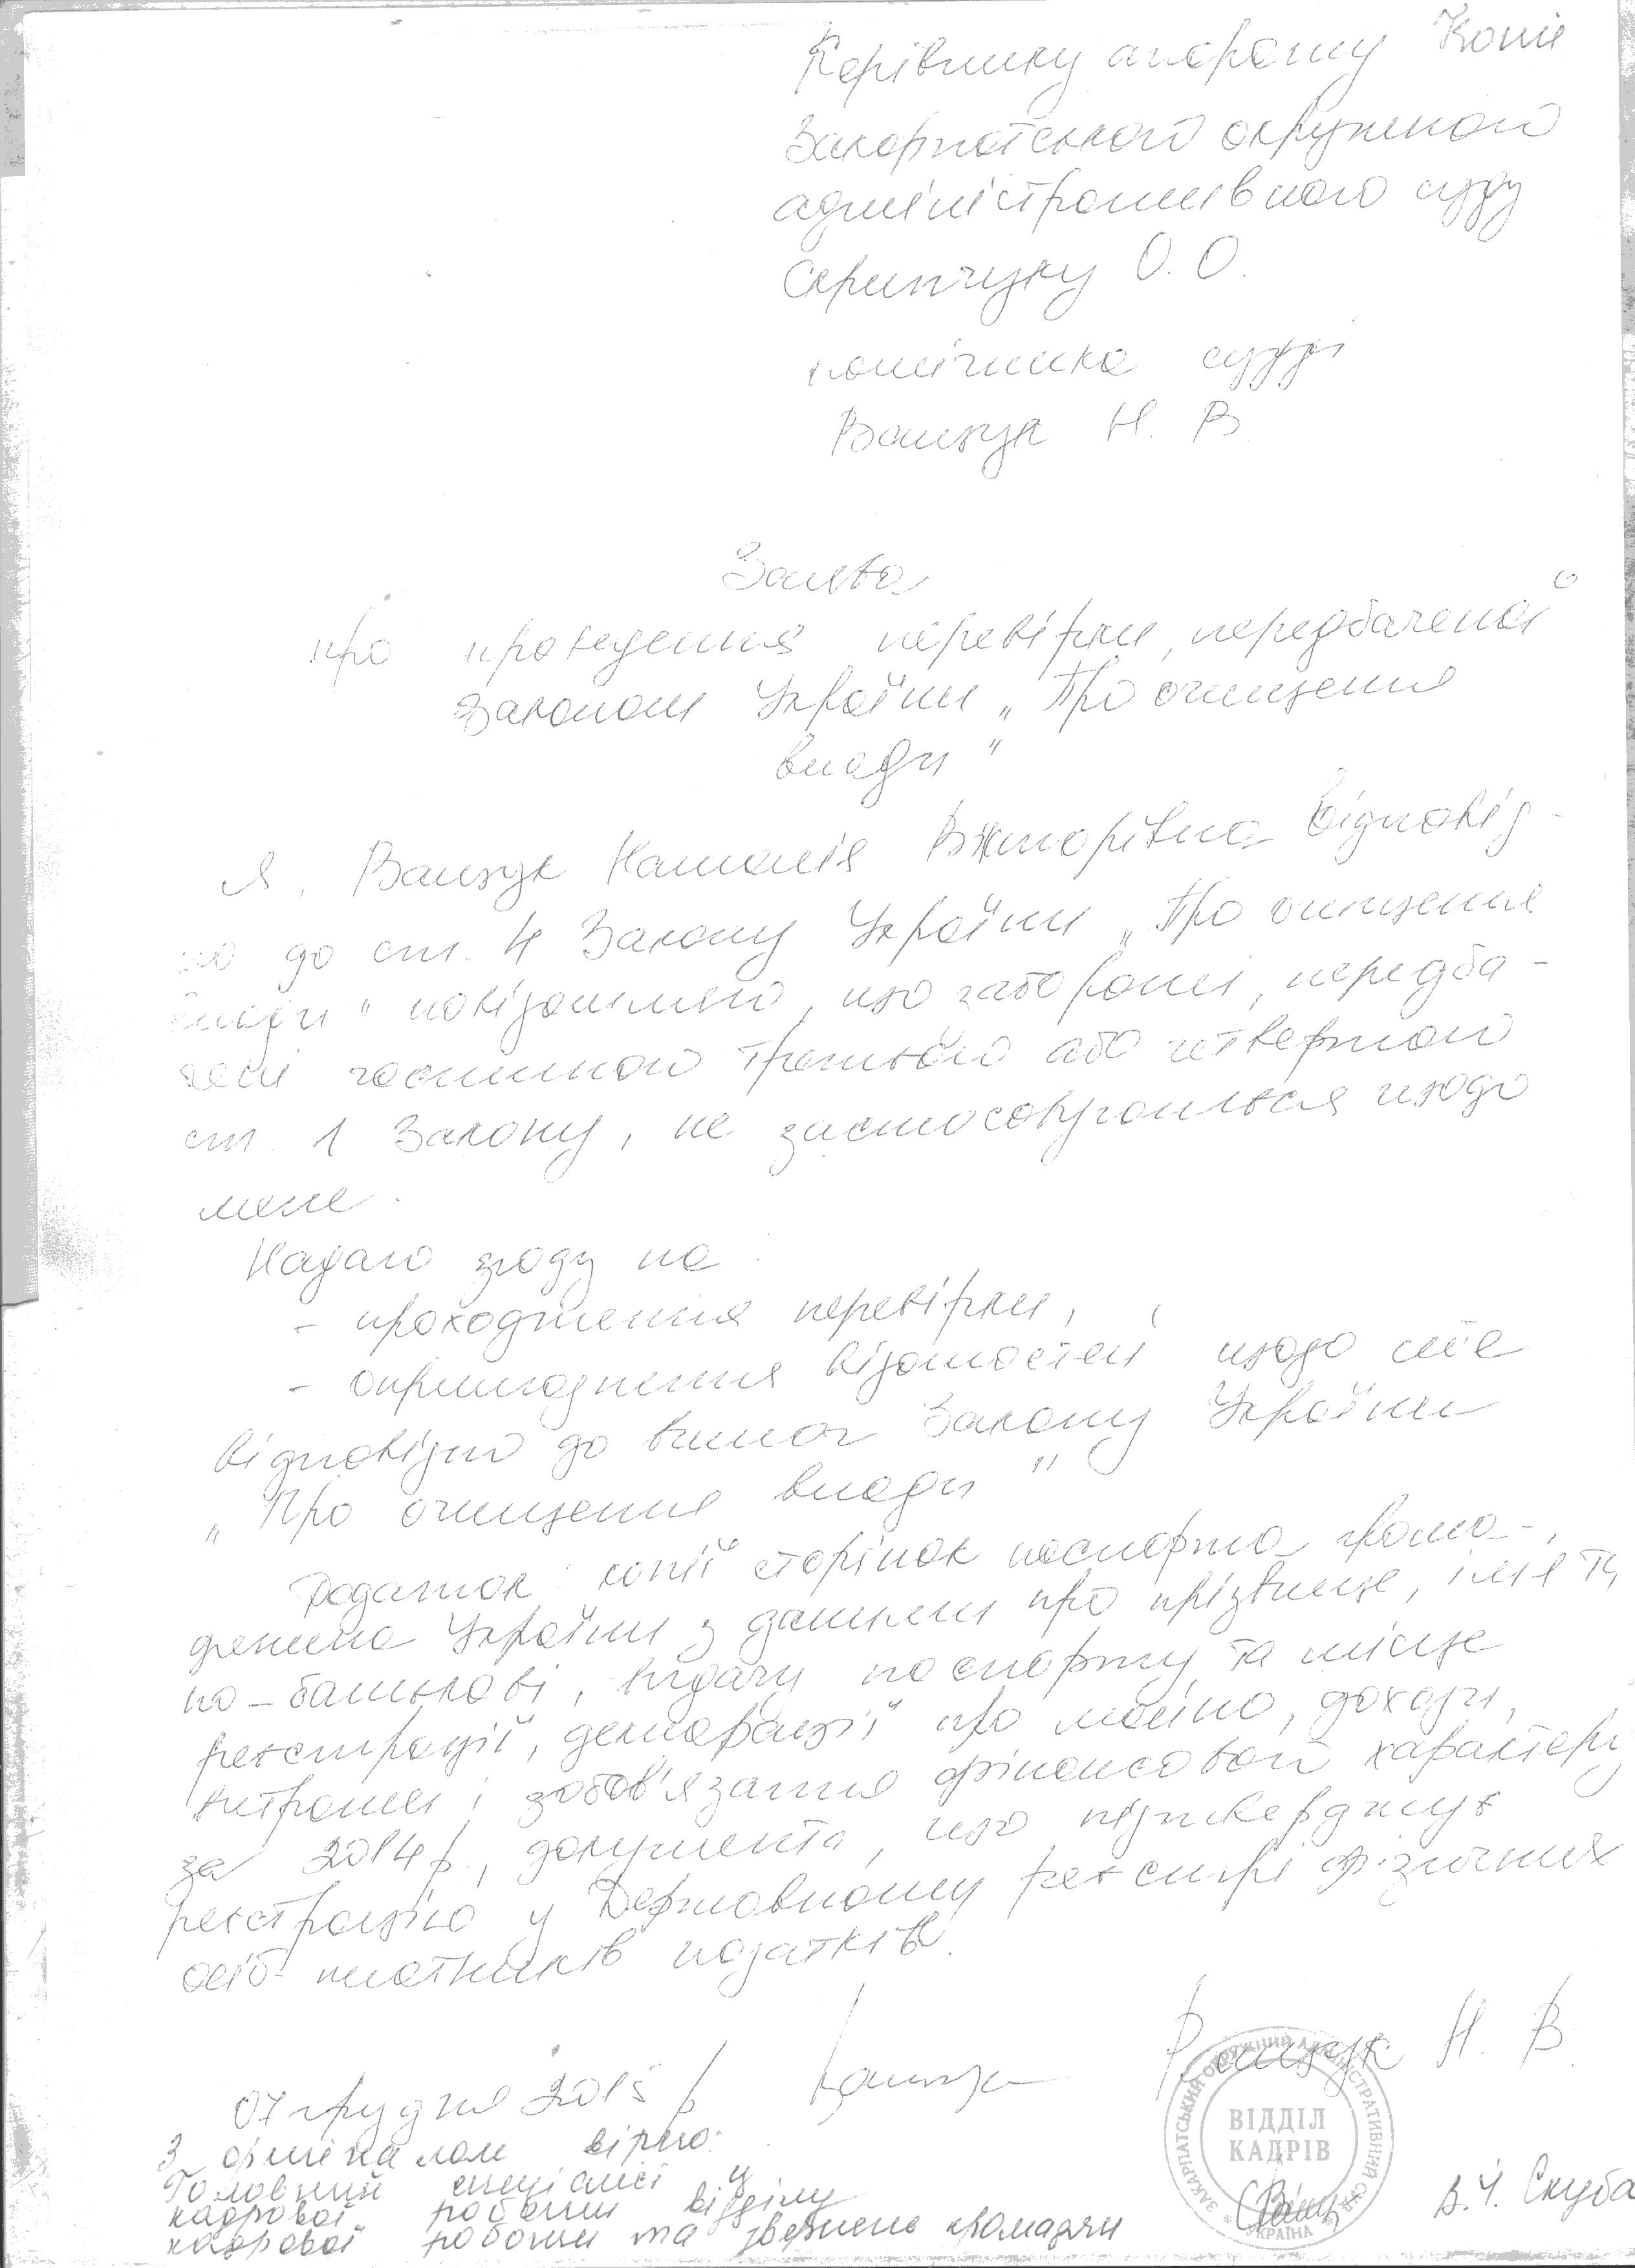 Керівнику апарату Копія
Закарпатського окружного
адміністративного суду
Скрипчуку О. О.
помічника судді
Ващук Н. В.
Заява
про проведення перевірки, передбаченої
Законом України „Про очищення
влади"
Я, Ващук Наталія Вікторівна відповід-
но до ст. 4 Закону України „Про очищення
влади" повідомляю, що заборони, передба-
чені частиною третьою або четвертою
ст. 1 Закону, не застосовуються щодо
мене.
Надаю згоду на:
- проходження перевірки,
- оприлюднення відомостей щодо себе
відповідно до вимог Закону України
„Про очищення влади"
Додаток: копії сторінок паспорта грома-
дянина України з даними про прізвище, ім'я та
по-батькові, видачу паспорту та місце
реєстрації, декларації про майно, доходи,
витрати і зобов'язання фінансового характеру
за 2014 р., документа, що підтверджує
реєстрацію у Державному реєстрі фізичних
осіб платників податків.
07 грудня 2015 р. Ващук Н. В.
З оригіналом вірно:
Головний спеціаліст
кадрової роботи відділу
кадрової роботи та звернень громадян В.Ч. Скуба
ЗАКАРПАТСЬКИЙ ОКРУЖНИЙ АДМІНІСТРАТИВНИЙ СУД * УКРАЇНА *
ВІДДІЛ
КАДРІВ